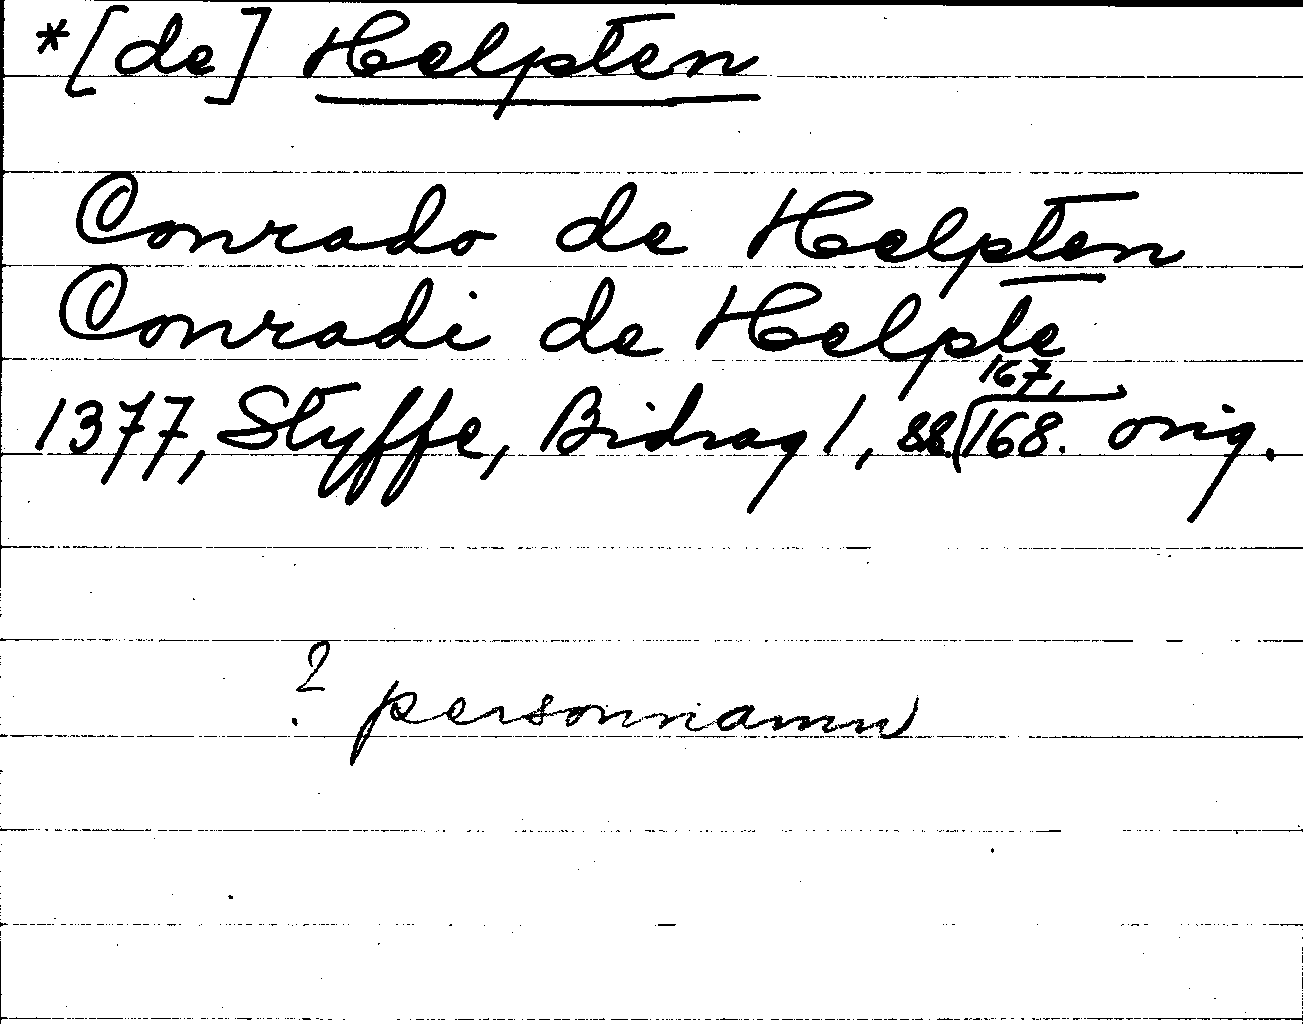 *[de] Helpten
Conrado de Helpten
Conradi de Helpte
1377, Styffe, Bidrag 1, ss. 167, 168. orig.
? personnamn